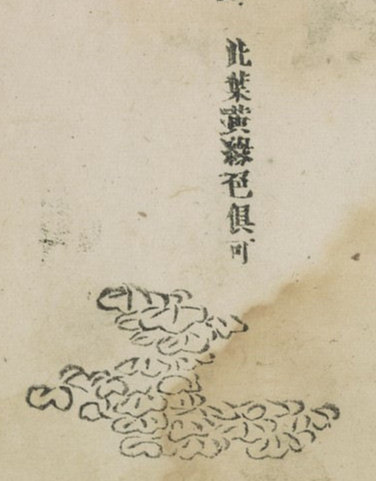 此葉黃綠色俱可